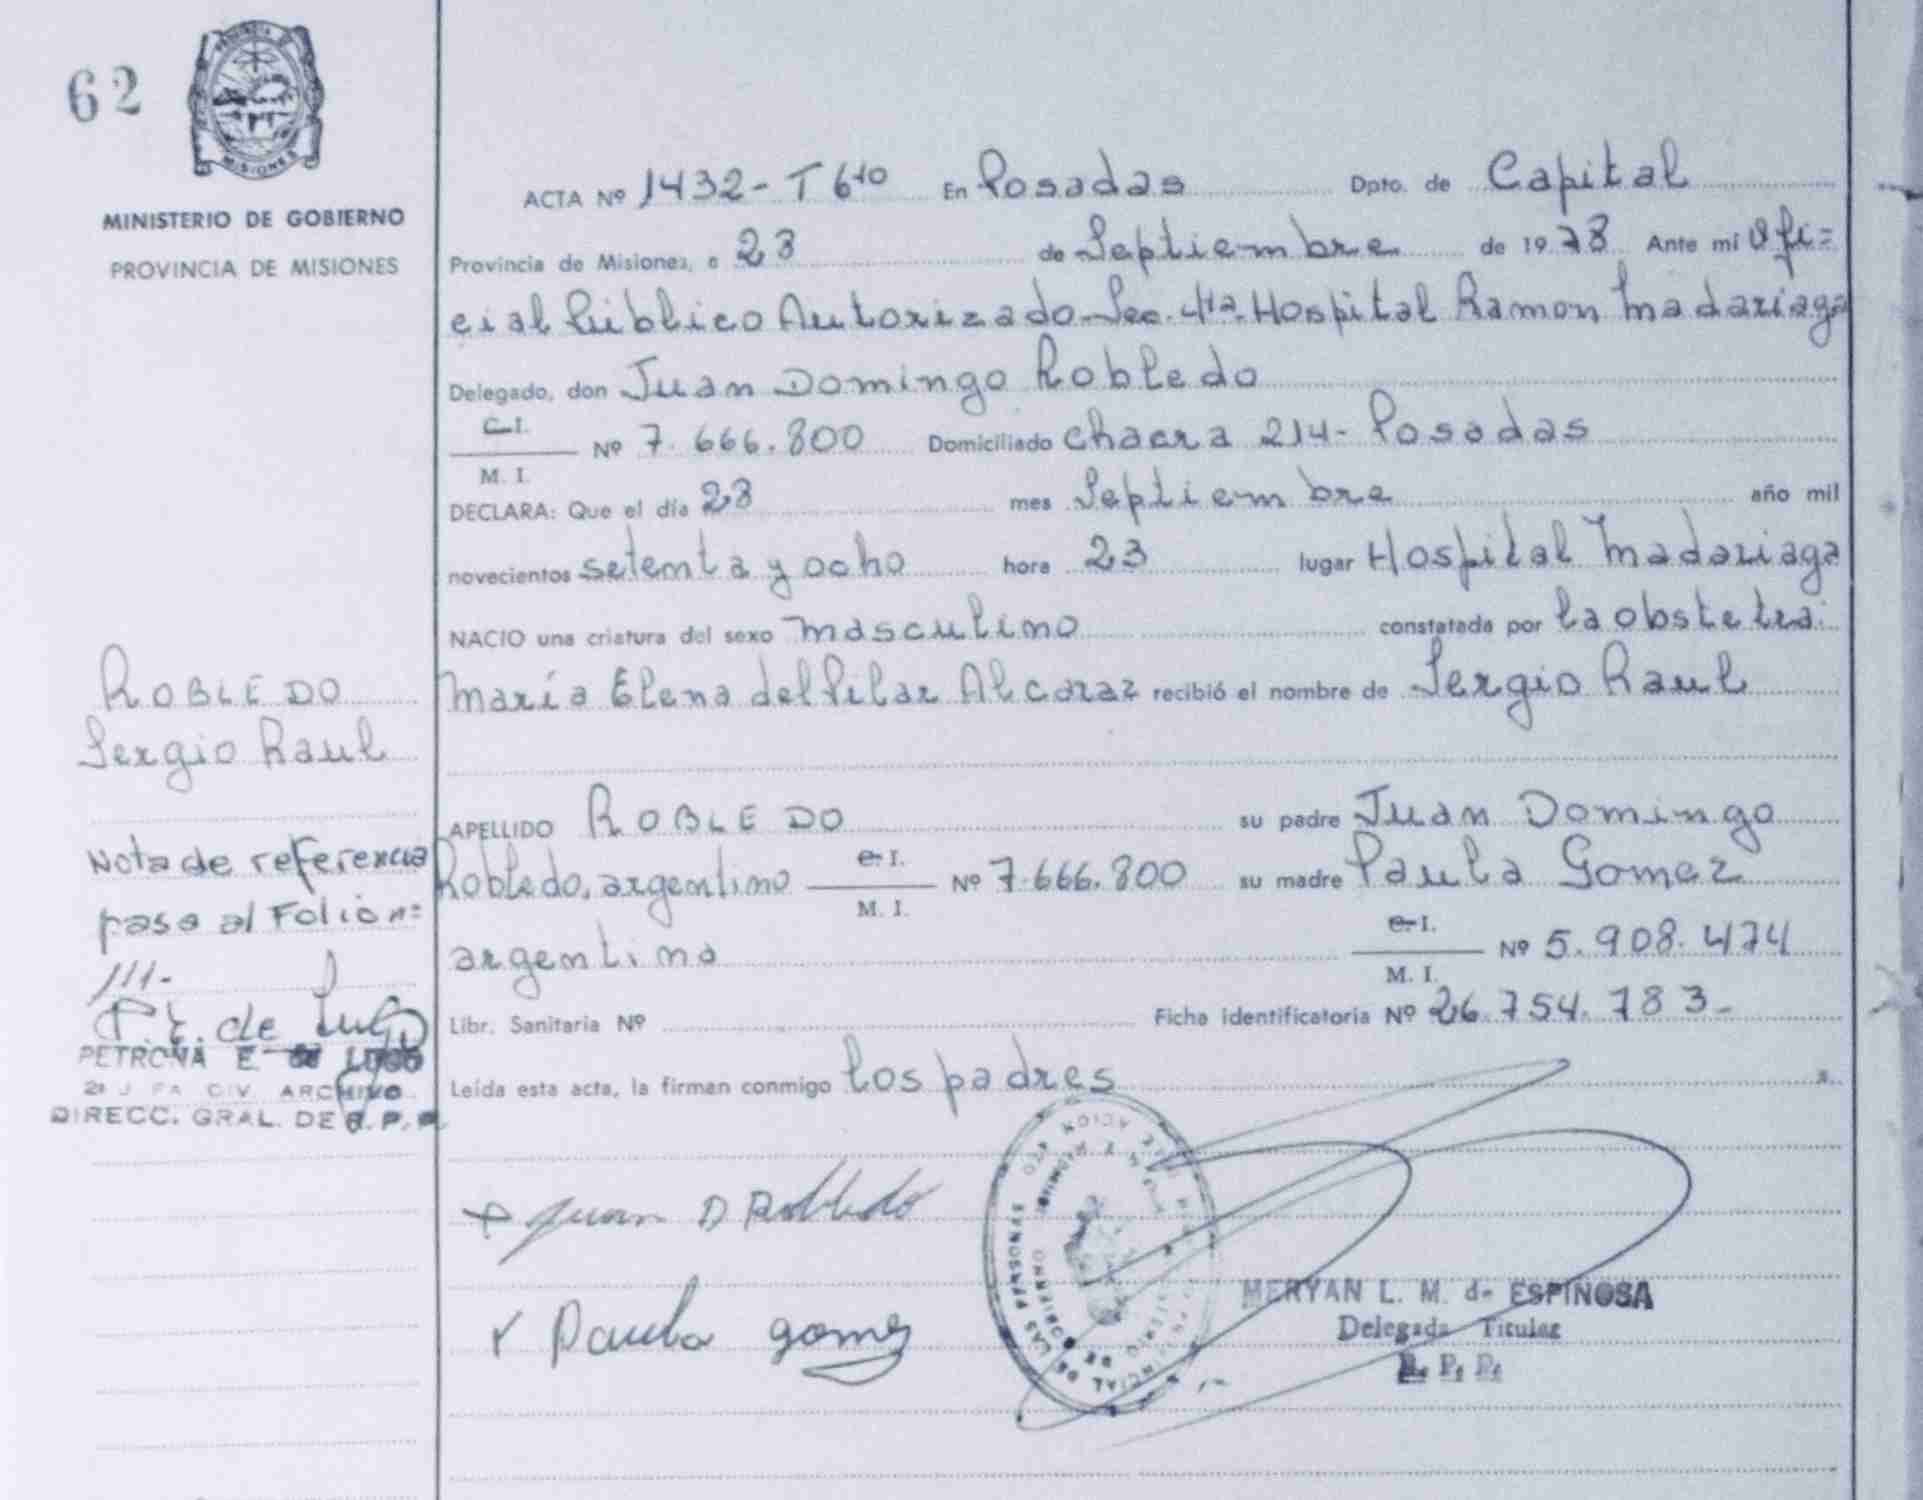 62
PROVINCIA DE
MISIONES
MINISTERIO DE GOBIERNO
PROVINCIA DE MISIONES
ACTA Nº 1432- T 6to En Posadas Dpto. de Capital
Provincia de Misiones, a 23 de Septiembre de 1978 Ante mí Ofi=
cial Público Autorizado Sec. 4ta. Hospital Ramon Madariaga
Delegado, don Juan Domingo Robledo
C.I.
M. I. Nº 7.666.800 Domiciliado Chacra 214- Posadas
DECLARA: Que el día 23 mes Septiembre año mil
novecientos setenta y ocho hora 23 lugar Hospital Madariaga
NACIO una criatura del sexo masculino constatada por la obstetra:
María Elena del Pilar Alcaraz recibió el nombre de Sergio Raul
APELLIDO ROBLEDO su padre Juan Domingo
Robledo, argentino C.I. M. I. Nº 7.666.800 su madre Paula Gomez
argentina C.I. M. I. Nº 5.908.474
Libr. Sanitaria Nº Ficha identificatoria Nº 26.754.783-
Leída esta acta, la firman conmigo los padres
Juan D Robledo
Paula gomez
MERYAN L. M. de ESPINOSA
Delegada Titular
R. P. P.
ROBLEDO
Sergio Raul
Nota de referencia
pasa al Folio nº
111-
P. E. de Lugo
PETRONA E. de LUGO
ARCHIVO
DIRECC. GRAL. DE R. P. P.